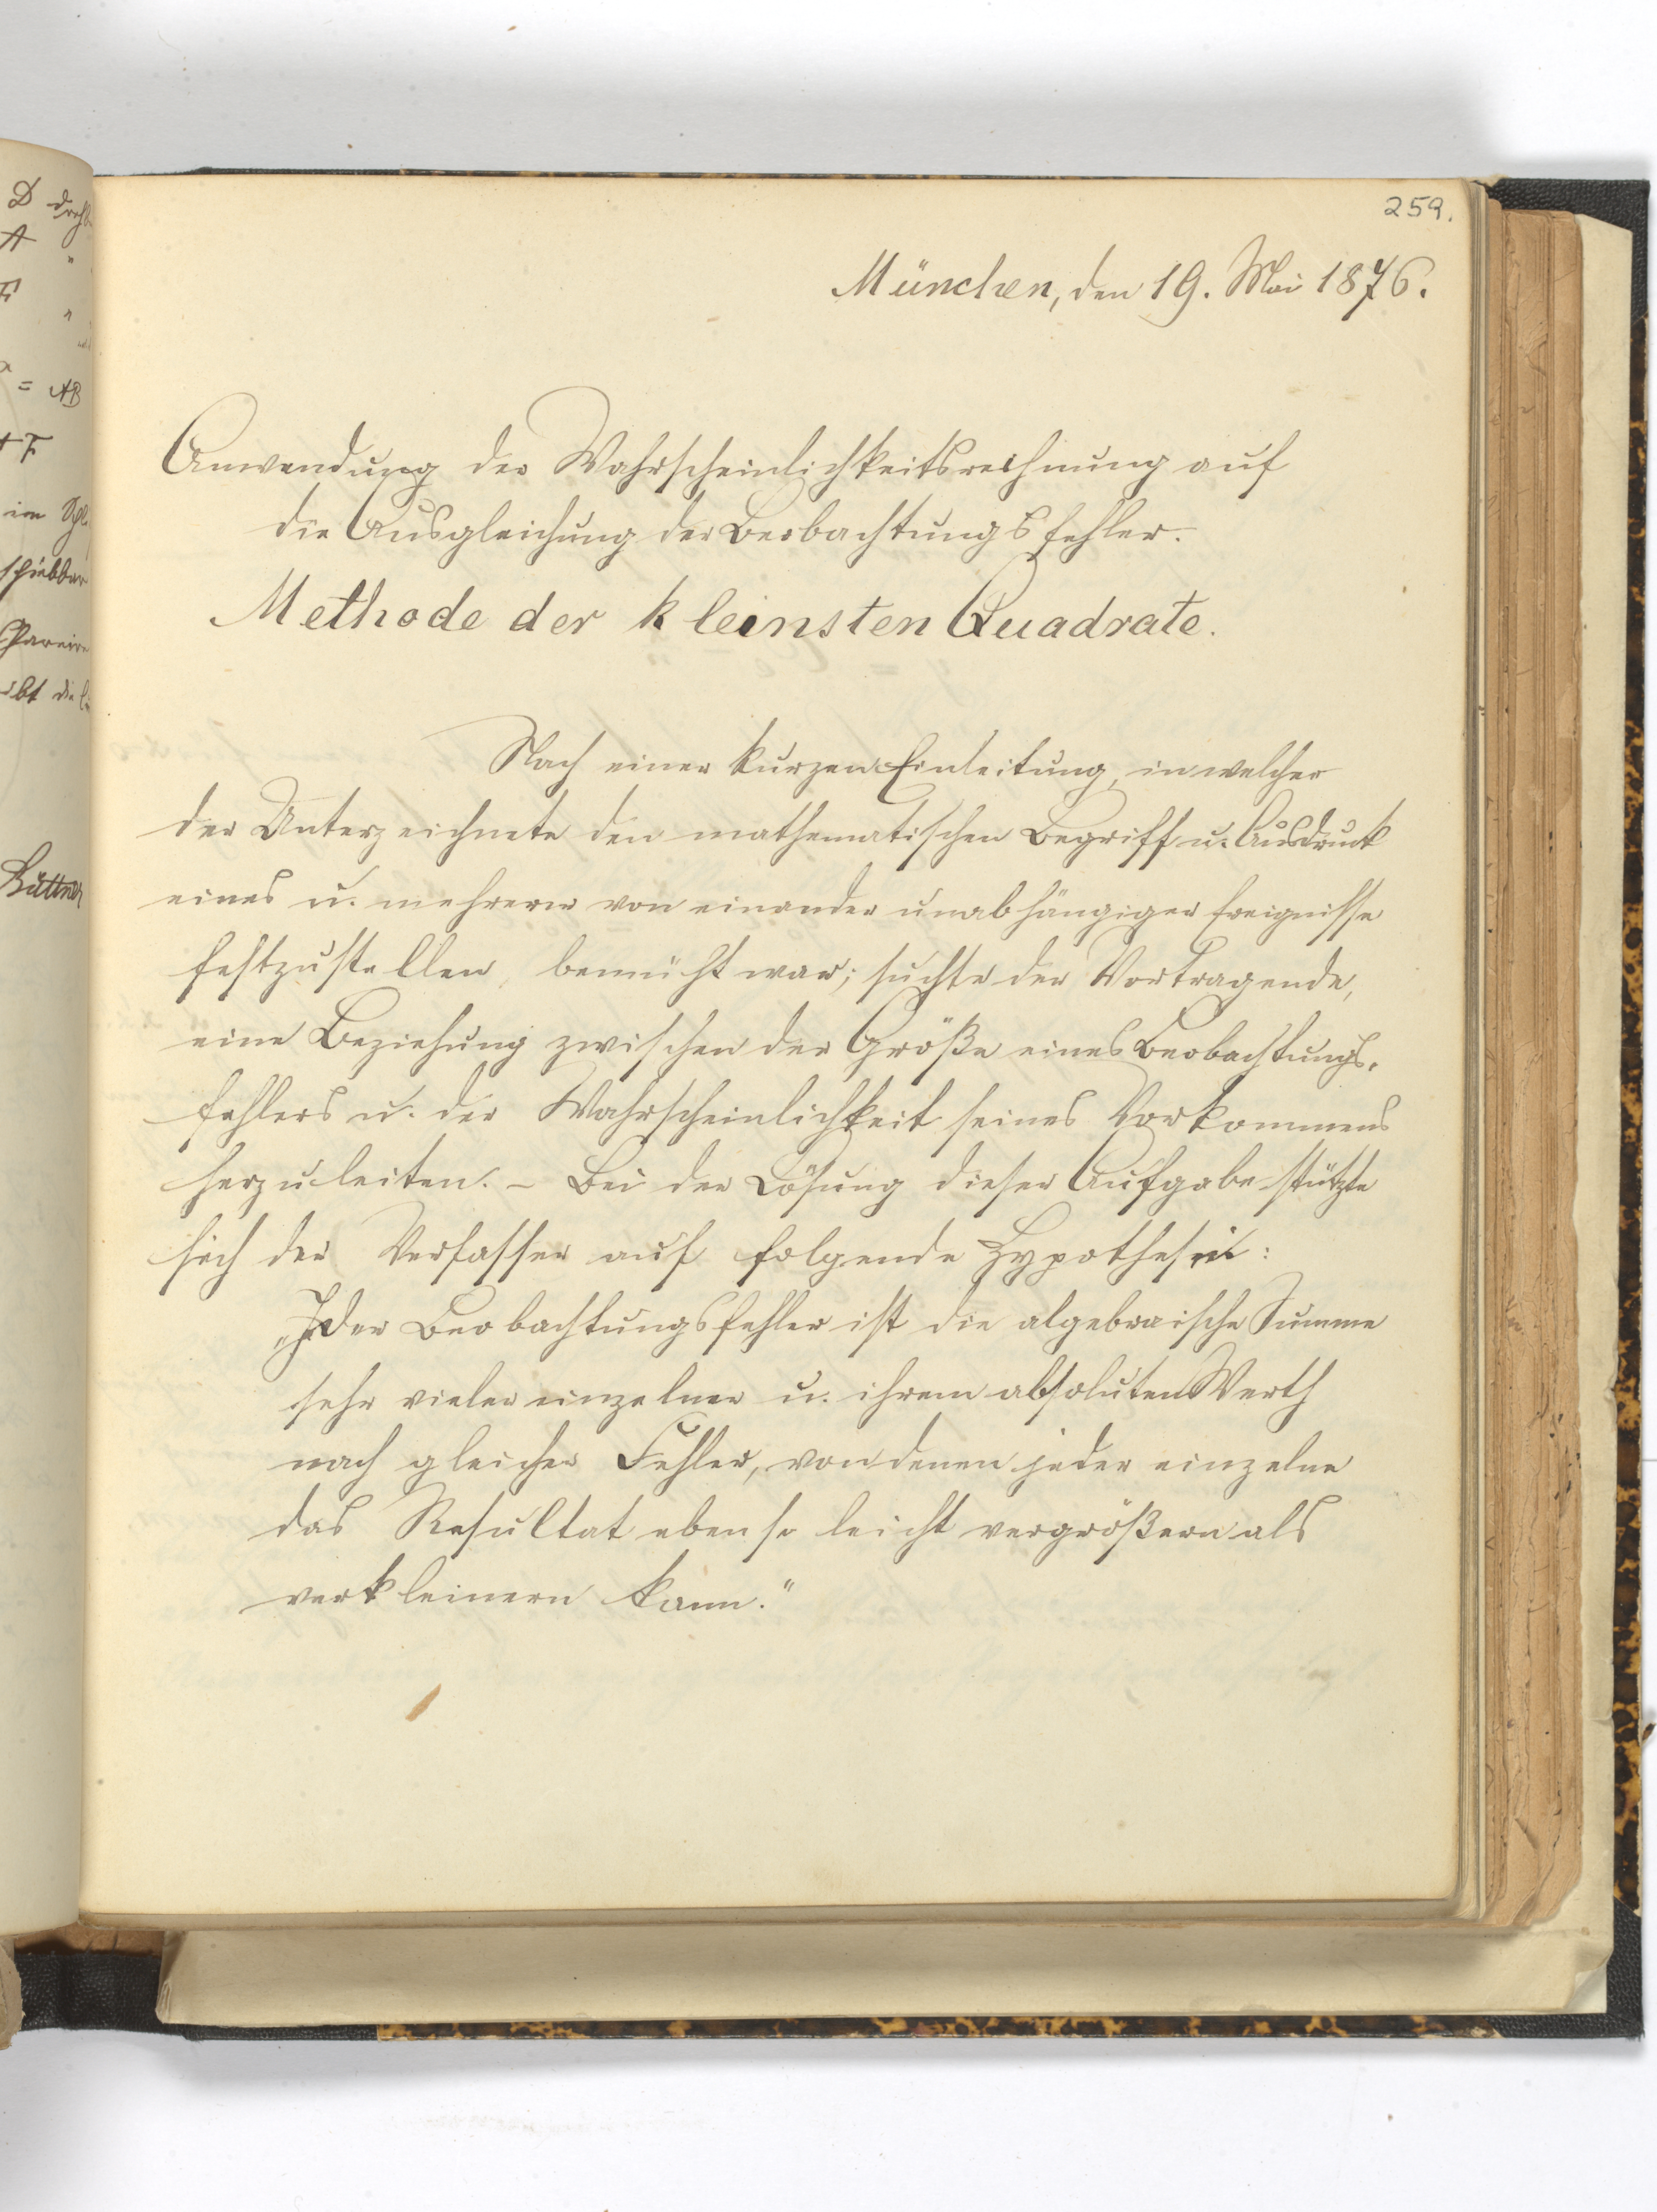 259.
München, den 19. Mai 1876.
Anwendung der Wahrscheinlichkeitsrechnung auf
die Ausgleichung der Beobachtungsfehler.
Methode der kleinsten Quadrate.
Nach einer kurzen Einleitung, in welcher
der Unterzeichnete den mathematischen Begriff u. Ausdruck
eines u. mehrerer von einander unabhängiger Ereignisse
festzustellen, bemüht war; suchte der Vortragende,
eine Beziehung zwischen der Größe eines Beobachtungs-
fehlers u. der Wahrscheinlichkeit seines Vorkommens
herzuleiten. – Bei der Lösung dieser Aufgabe stützte
sich der Verfasser auf folgende Hypothese:
„Jeder Beobachtungsfehler ist die algebraische Summe
sehr vieler einzelner u. ihrem absoluten Werth
nach gleicher Fehler, von denen jeder einzelne
das Resultat ebenso leicht vergrößern als
verkleinern kann."
D
A
F
= AB
+ F
im
Büttner